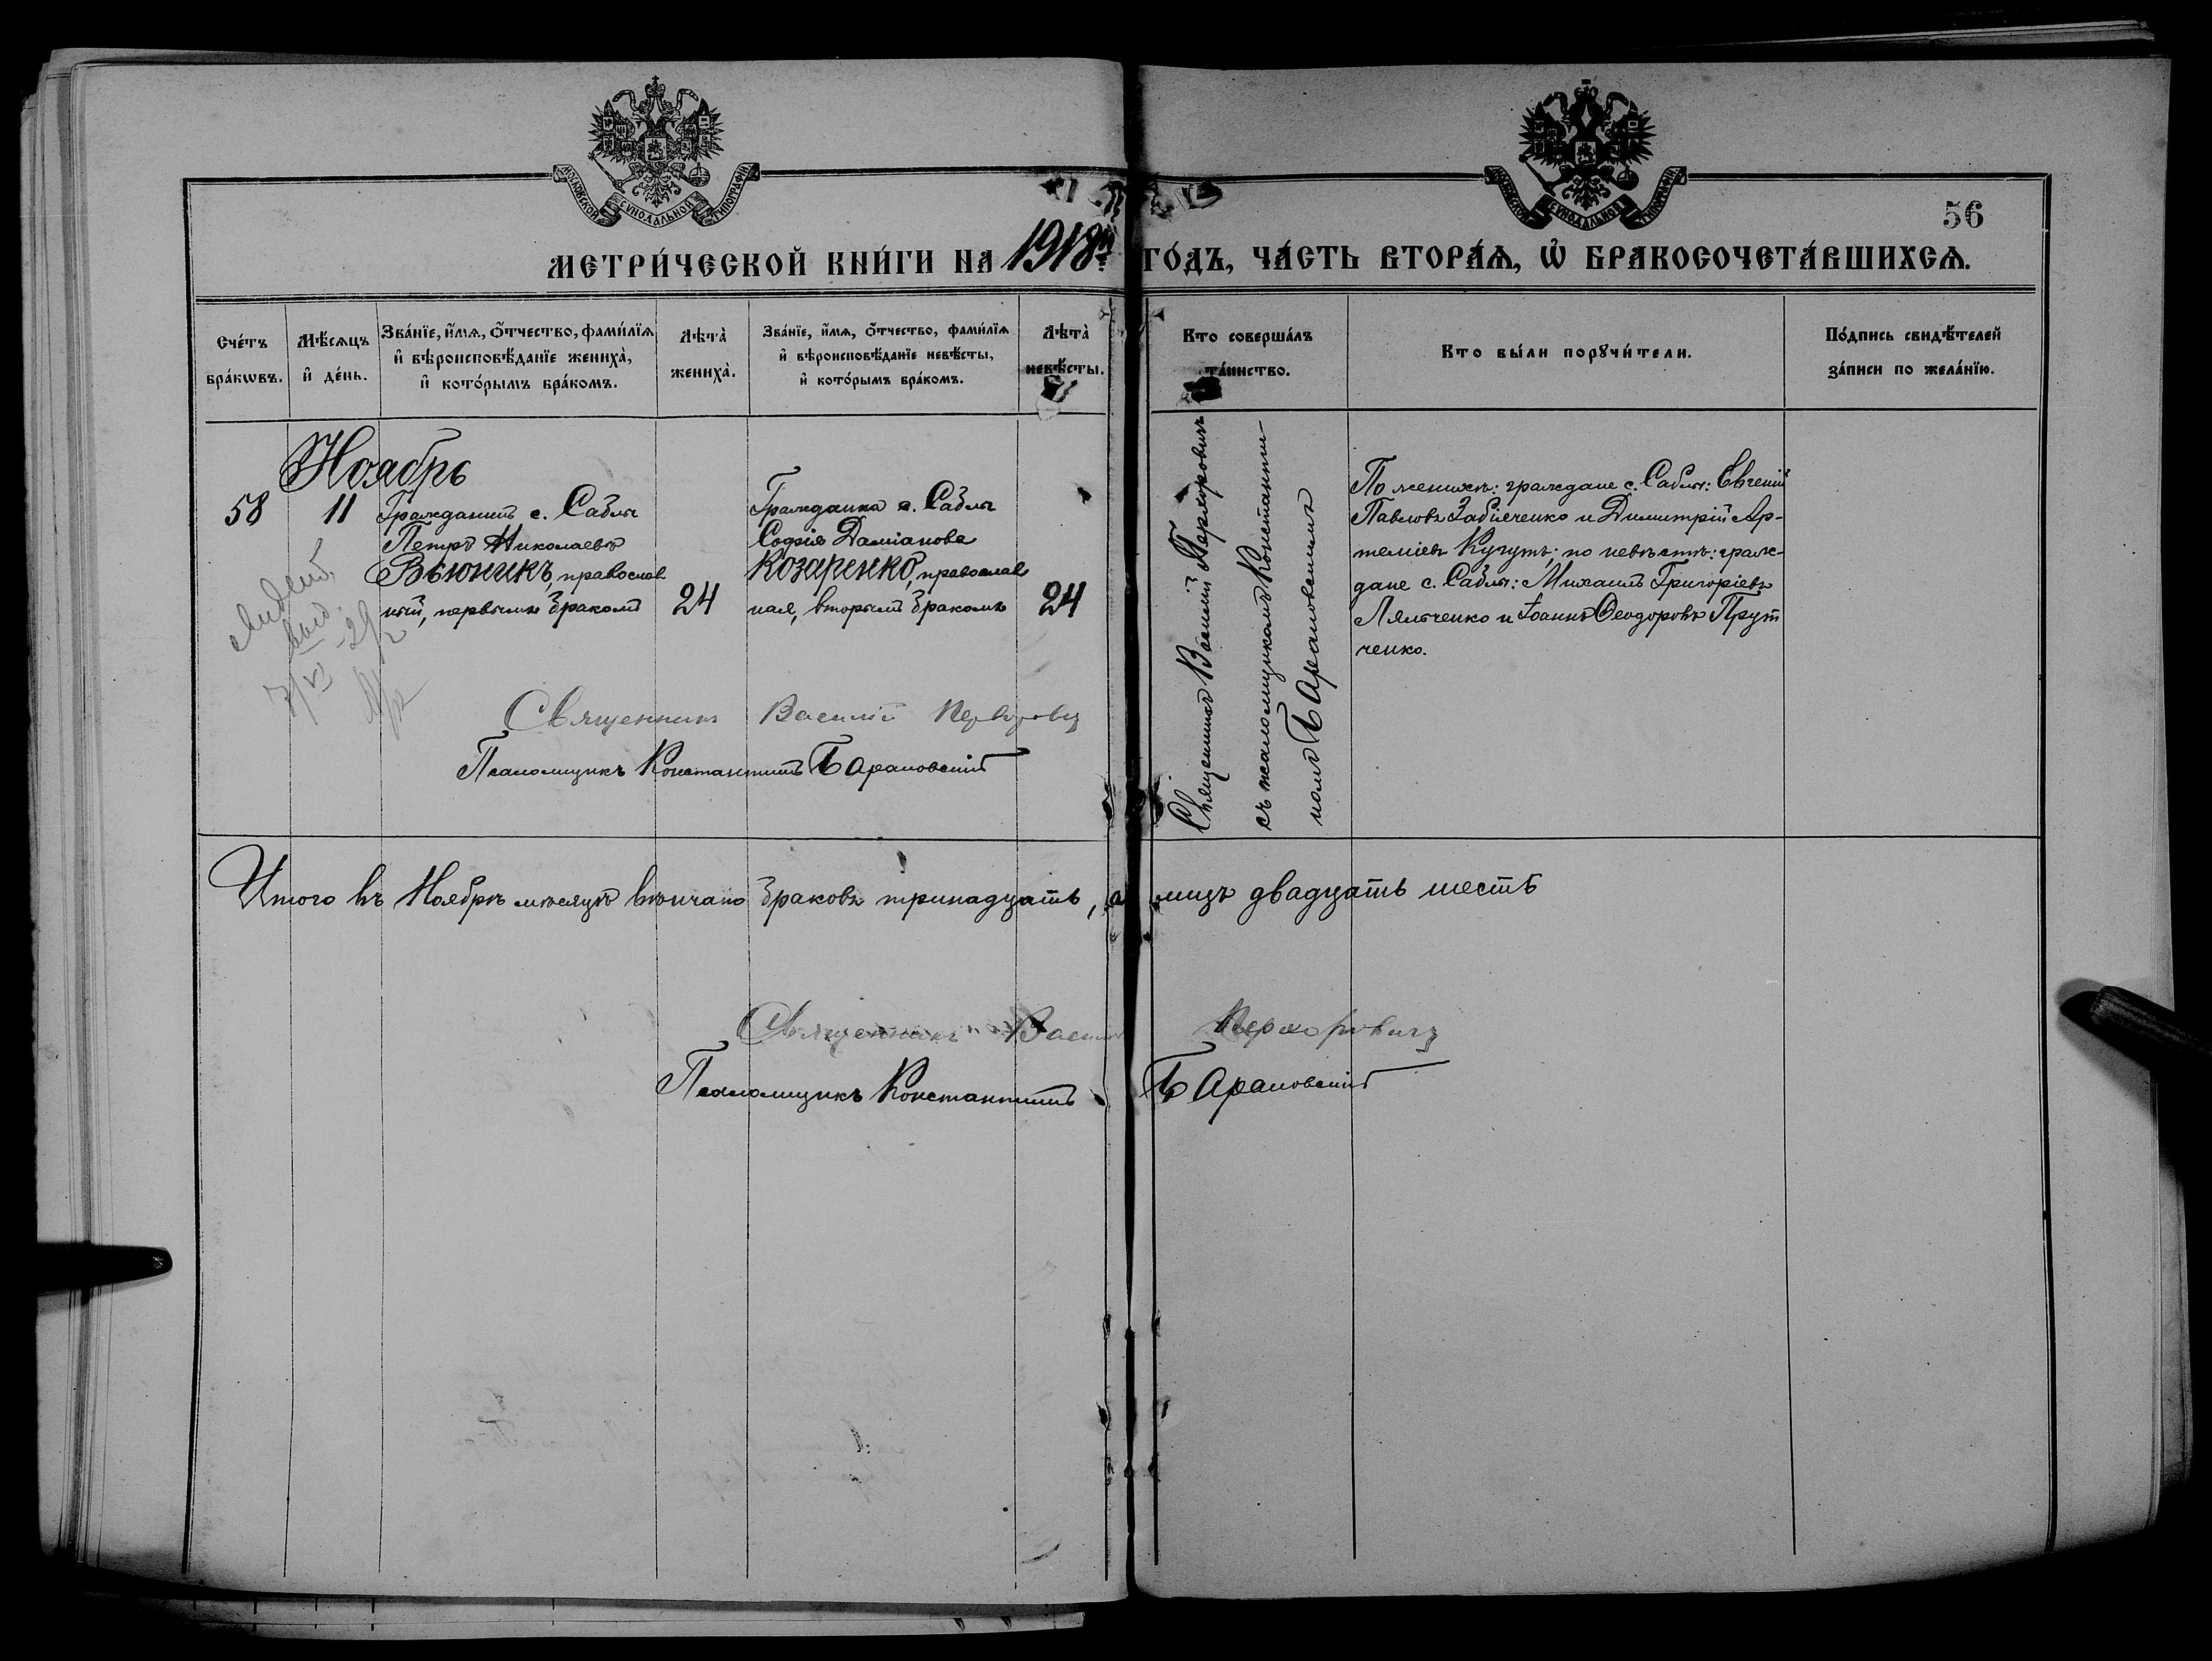 МОСКОВСКОЙ СѴНОДАЛЬНОЙ ТИПОГРАФІИ
МОСКОВСКОЙ СѴНОДАЛЬНОЙ ТИПОГРАФІИ
56
МЕТРИ́ЧЕСКОЙ КНИ́ГИ НА 1918й ГО́ДЪ, ЧА́СТЬ ВТОРА́Ѧ, Ѽ БРАКОСОЧЕТА́ВШИХСѦ.
Сче́тъ бра́кѡвъ.
Мѣ́сѧцъ и҆ де́нь.
Зва́нїе, и҆́мѧ, ѻ҆́тчество, фами́лїѧ
и҆ вѣроисповѣ́данїе жениха̀,
и҆ кото́рымъ бра́комъ.
Лѣта̀ жениха̀.
Зва́нїе, и҆́мѧ, ѻ҆́тчество, фами́лїѧ
и҆ вѣроисповѣ́данїе невѣ́сты,
и҆ кото́рымъ бра́комъ.
Лѣта̀ невѣ́сты.
Кто соверша́лъ та́инство.
Кто бы́ли порꙋчи́тели.
По́дпись свидѣ́телей
за́писи по жела́нїю.
Ноябрь
58
11
Гражданинъ с. Саблы
Петръ Николаевъ
Вьюникъ, православ
ный, первымъ бракомъ
24
Гражданка с. Саблы
Софія Даміанова
Козаренко, православ
ная, вторымъ бракомъ
24
Священникъ Василій Пархоровичъ
съ псаломщикомъ Константи-
номъ Барановскимъ
По женихѣ: граждане с. Саблы: Евгеній
Павловъ Забіяченко и Димитрій Ар-
теміевъ Кугутъ; по невѣстѣ: граж-
дане с. Саблы: Михаилъ Григоріевъ
Ляльченко и Іоаннъ Ѳеодоровъ Прут
ченко.
Священникъ Василій
Псаломщикъ Константинъ Барановскій
Итого въ Ноябрѣ мѣсяцѣ вѣнчано браковъ тринадцать, а лицъ двадцать шесть
Священникъ Василій Пархоровичъ
Псаломщикъ Константинъ Барановскій